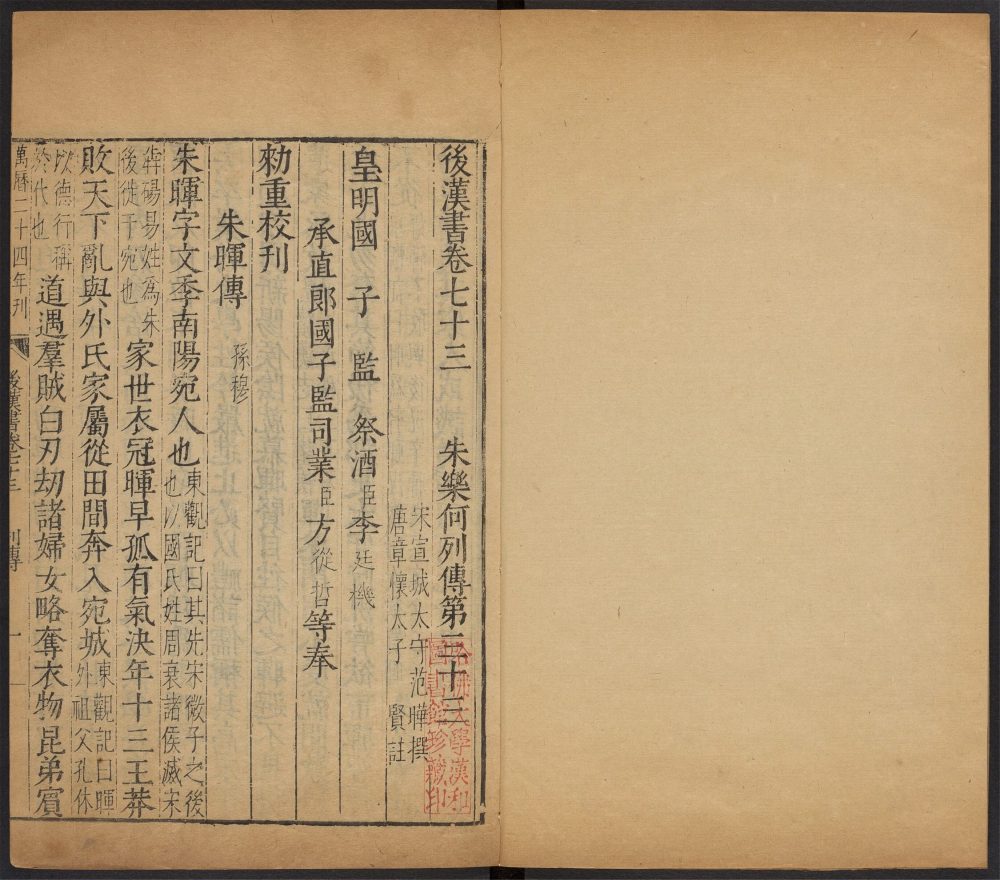 後漢書卷七十三 朱樂何列傳第三十三
宋宣城太守范曄撰
唐章懷太子賢註
皇明國子監祭酒臣李廷機
承直郎國子監司業臣方從哲等奉
勑重校刊
朱暉傳 孫穆
朱暉字文季南陽宛人也東觀記曰其先宋微子之後
也以國氏姓周衰諸侯滅宋
犇碭易姓爲朱
後徙于宛也
家世衣冠暉早孤有氣決年十三王莽
敗天下亂與外氏家屬從田間奔入宛城東觀記曰暉
外祖父孔休
以德行稱
於代也
道遇羣賊白刃劫諸婦女略奪衣物昆弟賓
萬曆二十四年刊
後漢書卷七十三 列傳 一
哈佛大學漢和
圖書館珍藏印